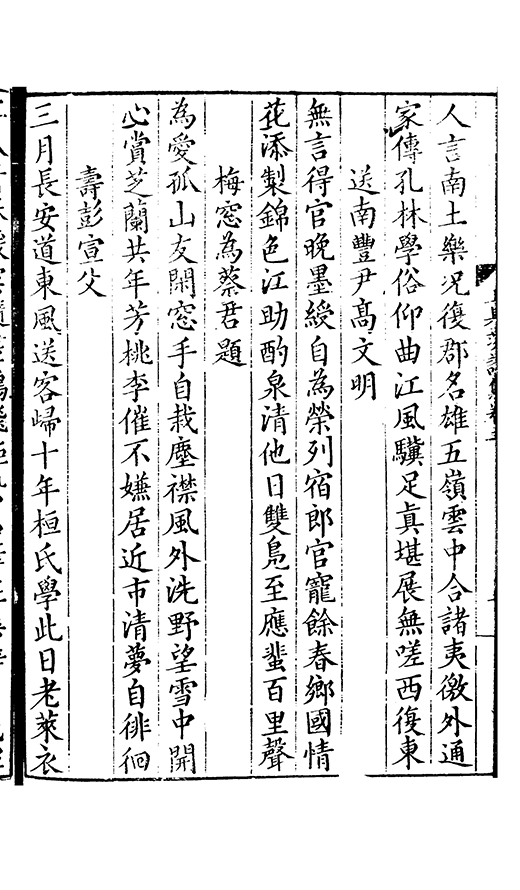 人言南土樂況復郡名雄五嶺雲中合諸夷徼外通
家傳孔林學俗仰曲江風驥足真堪展無嗟西復東
送南豐尹高文明
無言得官晚墨綬自為榮列宿郎官寵餘春鄉國情
花添製錦色江助酌泉清他日雙鳧至應蜚百里聲
梅窓為蔡君題
為愛孤山友閑窓手自栽塵襟風外洗野望雪中開
心賞芝蘭共年芳桃李催不嫌居近市清夢自徘徊
壽彭宣父
三月長安道東風送客歸十年桓氏學此日老萊衣